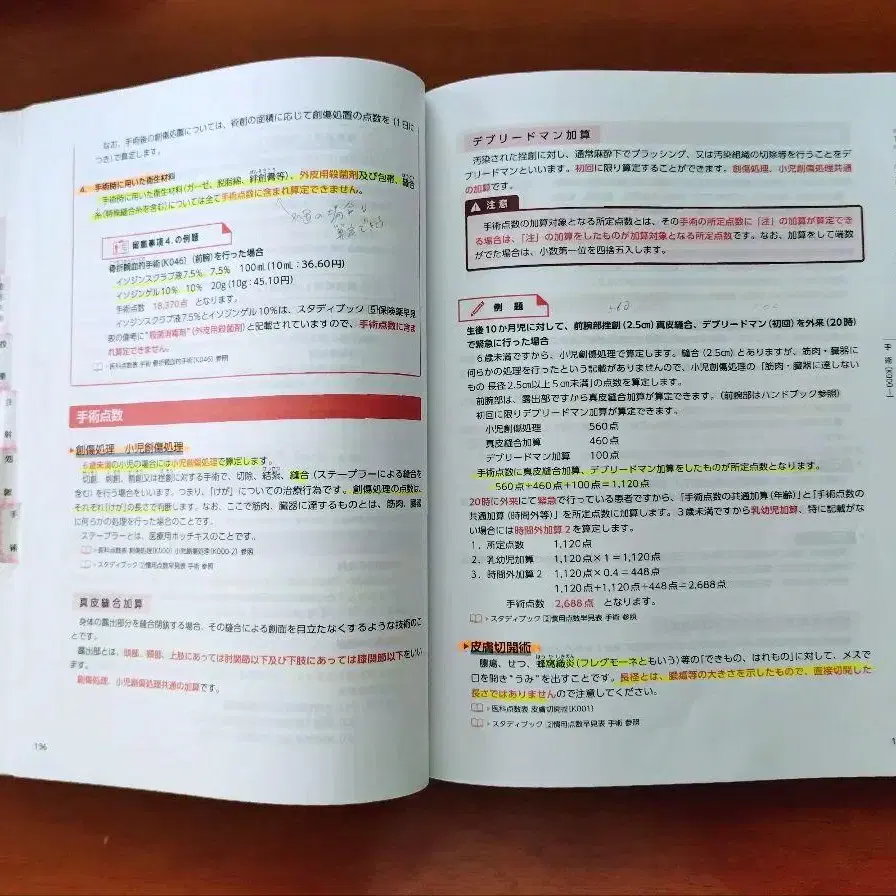 なお、手術後の創傷処置については、術創の面積に応じて創傷処置の点数を (1日に
つき)で算定します。
4. 手術時に用いた衛生材料
手術時に用いた衛生材料(ガーゼ、脱脂綿、絆創膏等)、外皮用殺菌剤及び包帯、縫合
糸(特殊縫合糸を含む)については全て手術点数に含まれ算定できません。
処置の場合は
算定できる
留意事項4.の例題
骨折観血的手術(K046) (前腕)を行った場合
イソジンスクラブ液7.5% 7.5% 100mL(10mL:36.60円)
イソジンゲル10% 10% 20g(10g:45.10円)
手術点数 18,370点 となります。
イソジンスクラブ液7.5%とイソジンゲル10%は、スタディブック⑤保険薬早見
表の備考に“殺菌消毒剤”(外皮用殺菌剤)と記載されていますので、手術点数に含ま
れ算定できません。
・医科点数表 手術 骨折観血的手術(K046) 参照
手術点数
創傷処理 小児創傷処理
6歳未満の小児の場合には小児創傷処理で算定します。
切創、刺創、割創又は挫創に対する手術で、切除、結紮、縫合(ステープラーによる縫合を
含む)を行う場合をいいます。つまり、「けが」についての治療行為です。創傷処理の点数は、
それぞれ「けが」の長さで判断します。なお、ここで筋肉、臓器に達するものとは、筋肉、臓器
に何らかの処理を行った場合のことです。
ステープラーとは、医療用ホッチキスのことです。
・医科点数表 創傷処理(K000) 小児創傷処理(K000-2) 参照
・スタディブック ②慣用点数早見表 手術 参照
真皮縫合加算
身体の露出部分を縫合閉鎖する場合、その縫合による創面を目立たなくするような技術のこ
とです。
露出部とは、頭部、頸部、上肢にあっては肘関節以下及び下肢にあっては膝関節以下をいい
ます。
創傷処理、小児創傷処理共通の加算です。
196
デブリードマン加算
汚染された挫創に対し、通常麻酔下でブラッシング、又は汚染組織の切除等を行うことをデ
ブリードマンといいます。初回に限り算定することができます。創傷処理、小児創傷処理共通
の加算です。
注意
手術点数の加算対象となる所定点数とは、その手術の所定点数に「注」の加算が算定でき
る場合は、「注」の加算をしたものが加算対象となる所定点数です。なお、加算をして端数
がでた場合は、小数第一位を四捨五入します。
例 題
生後10か月児に対して、前腕部挫創(2.5cm)真皮縫合、デブリードマン(初回)を外来(20時)
で緊急に行った場合
6歳未満ですから、小児創傷処理で算定します。縫合(2.5cm)とありますが、筋肉・臓器に
何らかの処理を行ったという記載がありませんので、小児創傷処理の「筋肉・臓器に達しない
もの 長径2.5cm以上5cm未満」の点数を算定します。
前腕部は、露出部ですから真皮縫合加算が算定できます。(前腕部はハンドブック参照)
初回に限りデブリードマン加算が算定できます。
小児創傷処理 560点
真皮縫合加算 460点
デブリードマン加算 100点
手術点数に真皮縫合加算、デブリードマン加算をしたものが所定点数となります。
560点+460点+100点=1,120点
20時に外来にて緊急で行っている患者ですから、「手術点数の共通加算(年齢)」と「手術点数の
共通加算(時間外等)」を所定点数に加算します。3歳未満ですから乳幼児加算、特に記載がな
い場合には時間外加算2を算定します。
1．所定点数 1,120点
2．乳幼児加算 1,120点×1=1,120点
3．時間外加算2 1,120点×0.4=448点
1,120点+1,120点+448点=2,688点
手術点数 2,688点 となります。
・スタディブック ②慣用点数早見表 手術 参照
皮膚切開術
ほうかしきえん
膿瘍、せつ、蜂窩織炎(フレグモーネともいう)等の「できもの、はれもの」に対して、メスで
口を開き“うみ”を出すことです。長径とは、膿瘍等の大きさを示したもので、直接切開した
長さではありませんので注意してください。
・医科点数表 皮膚切開術(K001)
・スタディブック ②慣用点数早見表 手術 参照